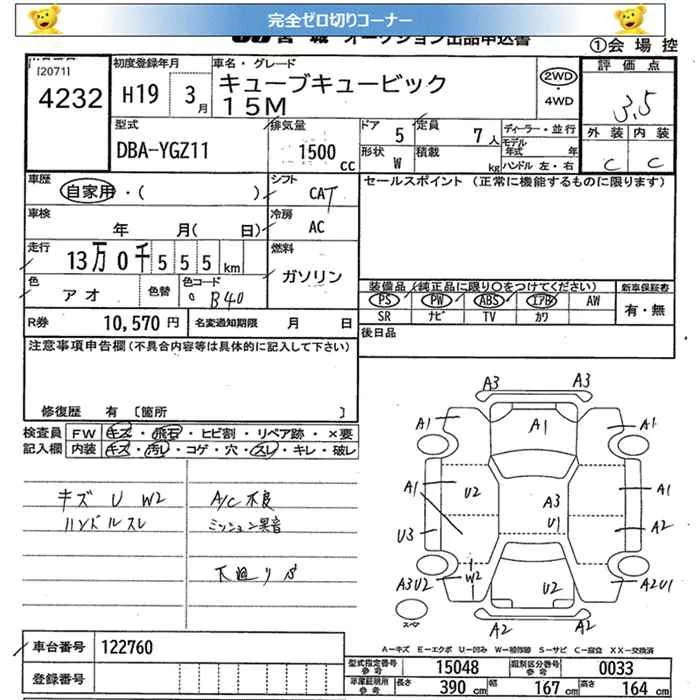 完全ゼロ切りコーナー
オークション出品申込書
①会場控
[2071]
4232
初度登録年月
H19 3月
車名・グレード
キューブキュービック
15M
2WD
・
4WD
評価点
3.5
外装 内装
C C
型式
DBA-YGZ11
排気量
1500 cc
ドア 5
定員 7人
ディーラー・並行
モデル年式 年
形状 W
積載 kg
ハンドル 左・右
車歴
自家用・( )
シフト
CAT
セールスポイント (正常に機能するものに限ります)
車検
年 月( 日)
冷房
AC
走行
13万0千555km
燃料
ガソリン
色
アオ
色替
色コード
B40
装備品 (純正品に限り○をつけてください)
新車保証書
PS PW ABS エアB AW
SR ナビ TV カワ
有・無
R券 10,570 円
名変通知期限 月 日
後日品
注意事項申告欄(不具合内容等は具体的に記入して下さい)
修復歴 有 [箇所 ]
検査員 FW キズ・飛石・ヒビ割・リペア跡・×要
記入欄 内装 キズ・汚レ・コゲ・穴・スレ・キレ・破レ
キズ U W2
ハンドルスレ
A/C不良
ミッション異音
下廻りサ
A3 A3
A1 A1 A1
A1 U2 A3 A1
U1 A2
U3
A3U2 W2 U2 A2U1
A2 A2
スペア
A-キズ E-エクボ U-凹み W-補修跡 S-サビ C-腐食 XX-交換済
車台番号 122760
登録番号
型式指定番号 参考 15048
類別区分番号 参考 0033
車庫証明用 参考 長さ 390 cm 幅 167 cm 高さ 164 cm